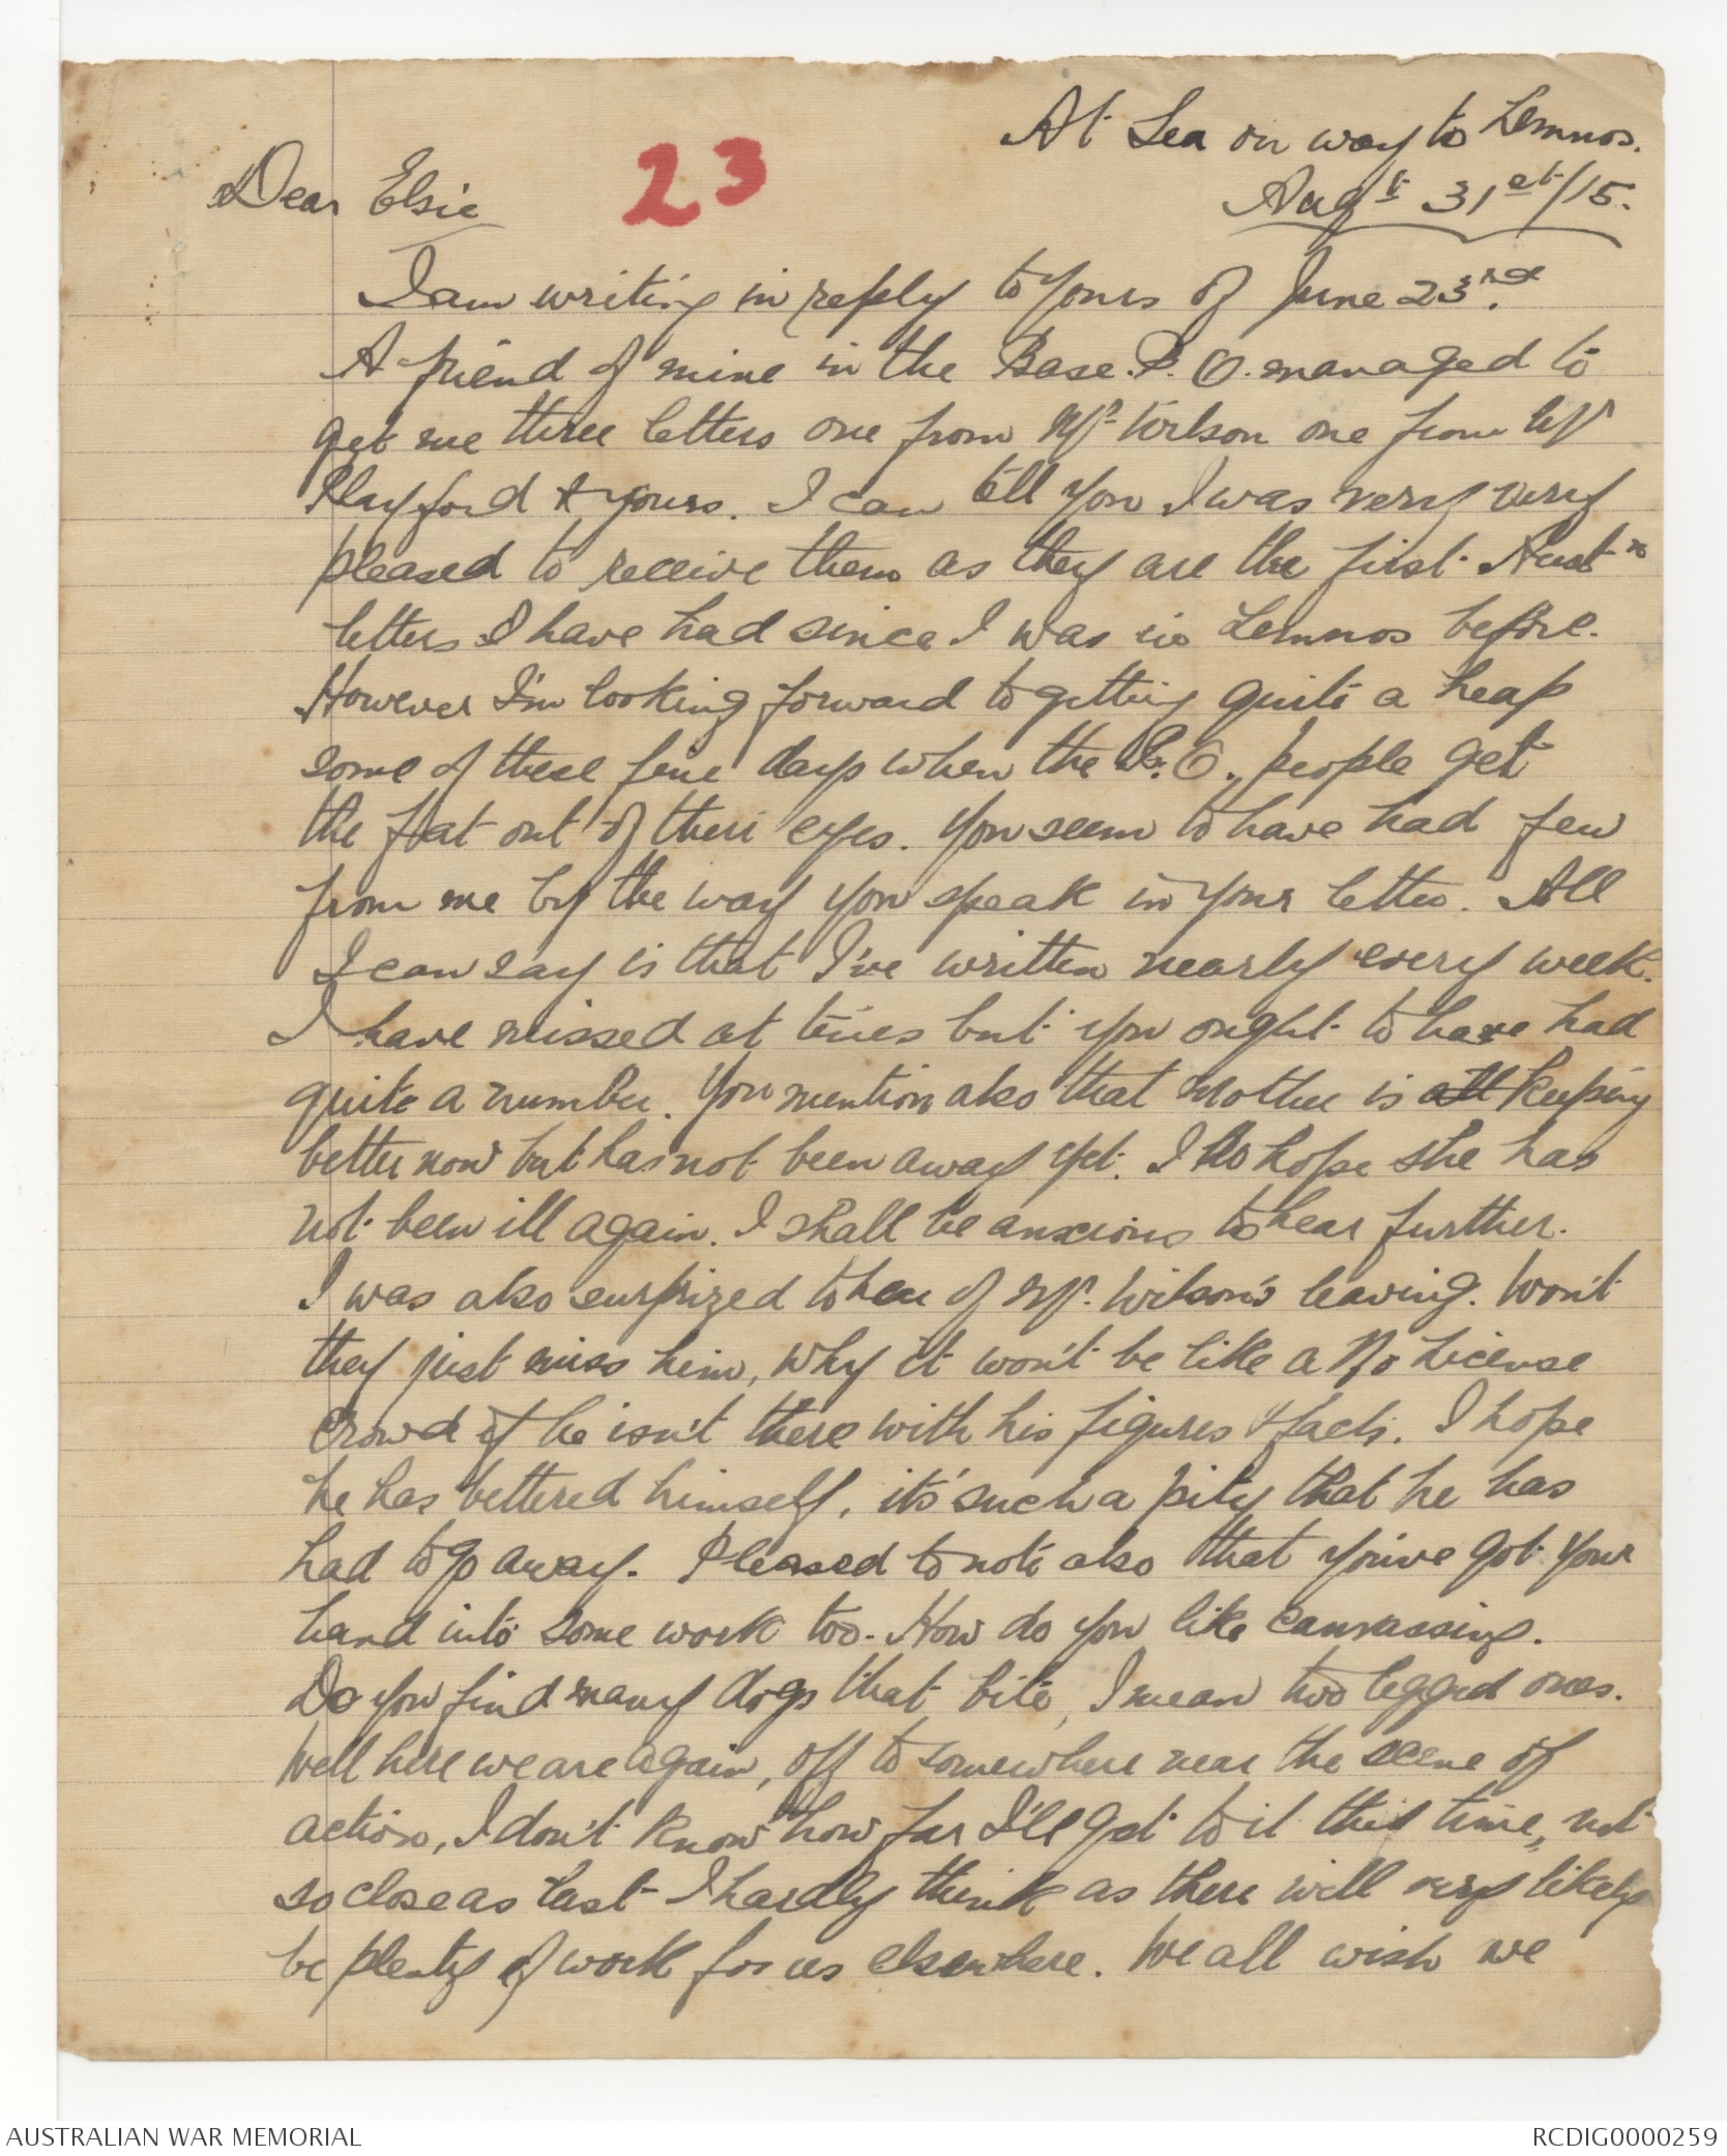 At Sea on way to Lemnos.
23
Augt 31st/15.
Dear Elsie
I am writing in reply to yours of June 23rd.
A friend of mine in the Base. P. O. managed to
get me three letters one from Mr Wilson one from Mr
Playford & yours. I can tell you I was very very
pleased to receive them as they are the first Austn
letters I have had since I was in Lemnos before.
However I'm looking forward to getting quite a heap
some of these fine days when the P. O., people get
the fat out of their eyes. You seem to have had few
from me by the way you speak in your letter. All
I can say is that I've written nearly every week.
I have missed at times but you ought to have had
quite a number. You mention also that Mother is all keeping
better now but has not been away yet. I do hope she has
not been ill again. I shall be anxious to hear further.
I was also surprized to hear of Mr. Wilson's leaving. Won't
they just miss him, why it won't be like a No License
crowd if he isn't there with his figures & facts. I hope
he has bettered himself, it's such a pity that he has
had to go away. Pleased to note also that you've got your
hand into some work too. How do you like canvassing.
Do you find many dogs that bite, I mean two legged ones.
Well here we are again, off to somewhere near the scene of
action, I don't know how far I'll get to it this time, not
so close as last I hardly think as there will very likely
be plenty of work for us elsewhere. We all wish we
AUSTRALIAN WAR MEMORIAL
RCDIG0000259